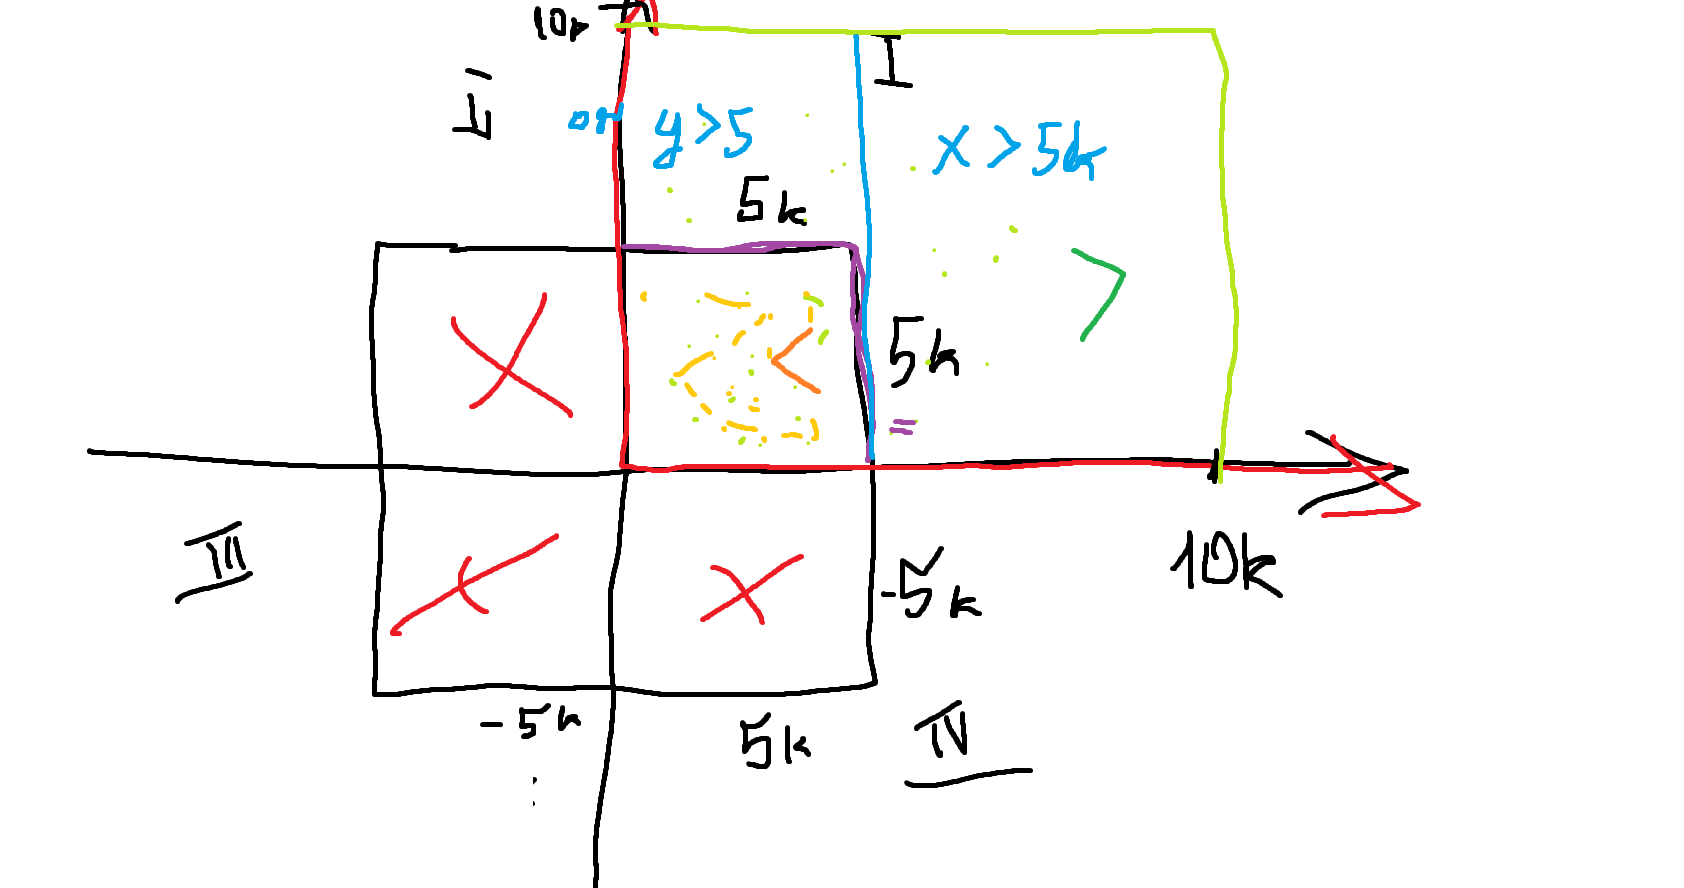 10k
I
II
or y>5
x>5k
5k
>
<
5k
=
III
10k
-5k
-5k
5k
IV